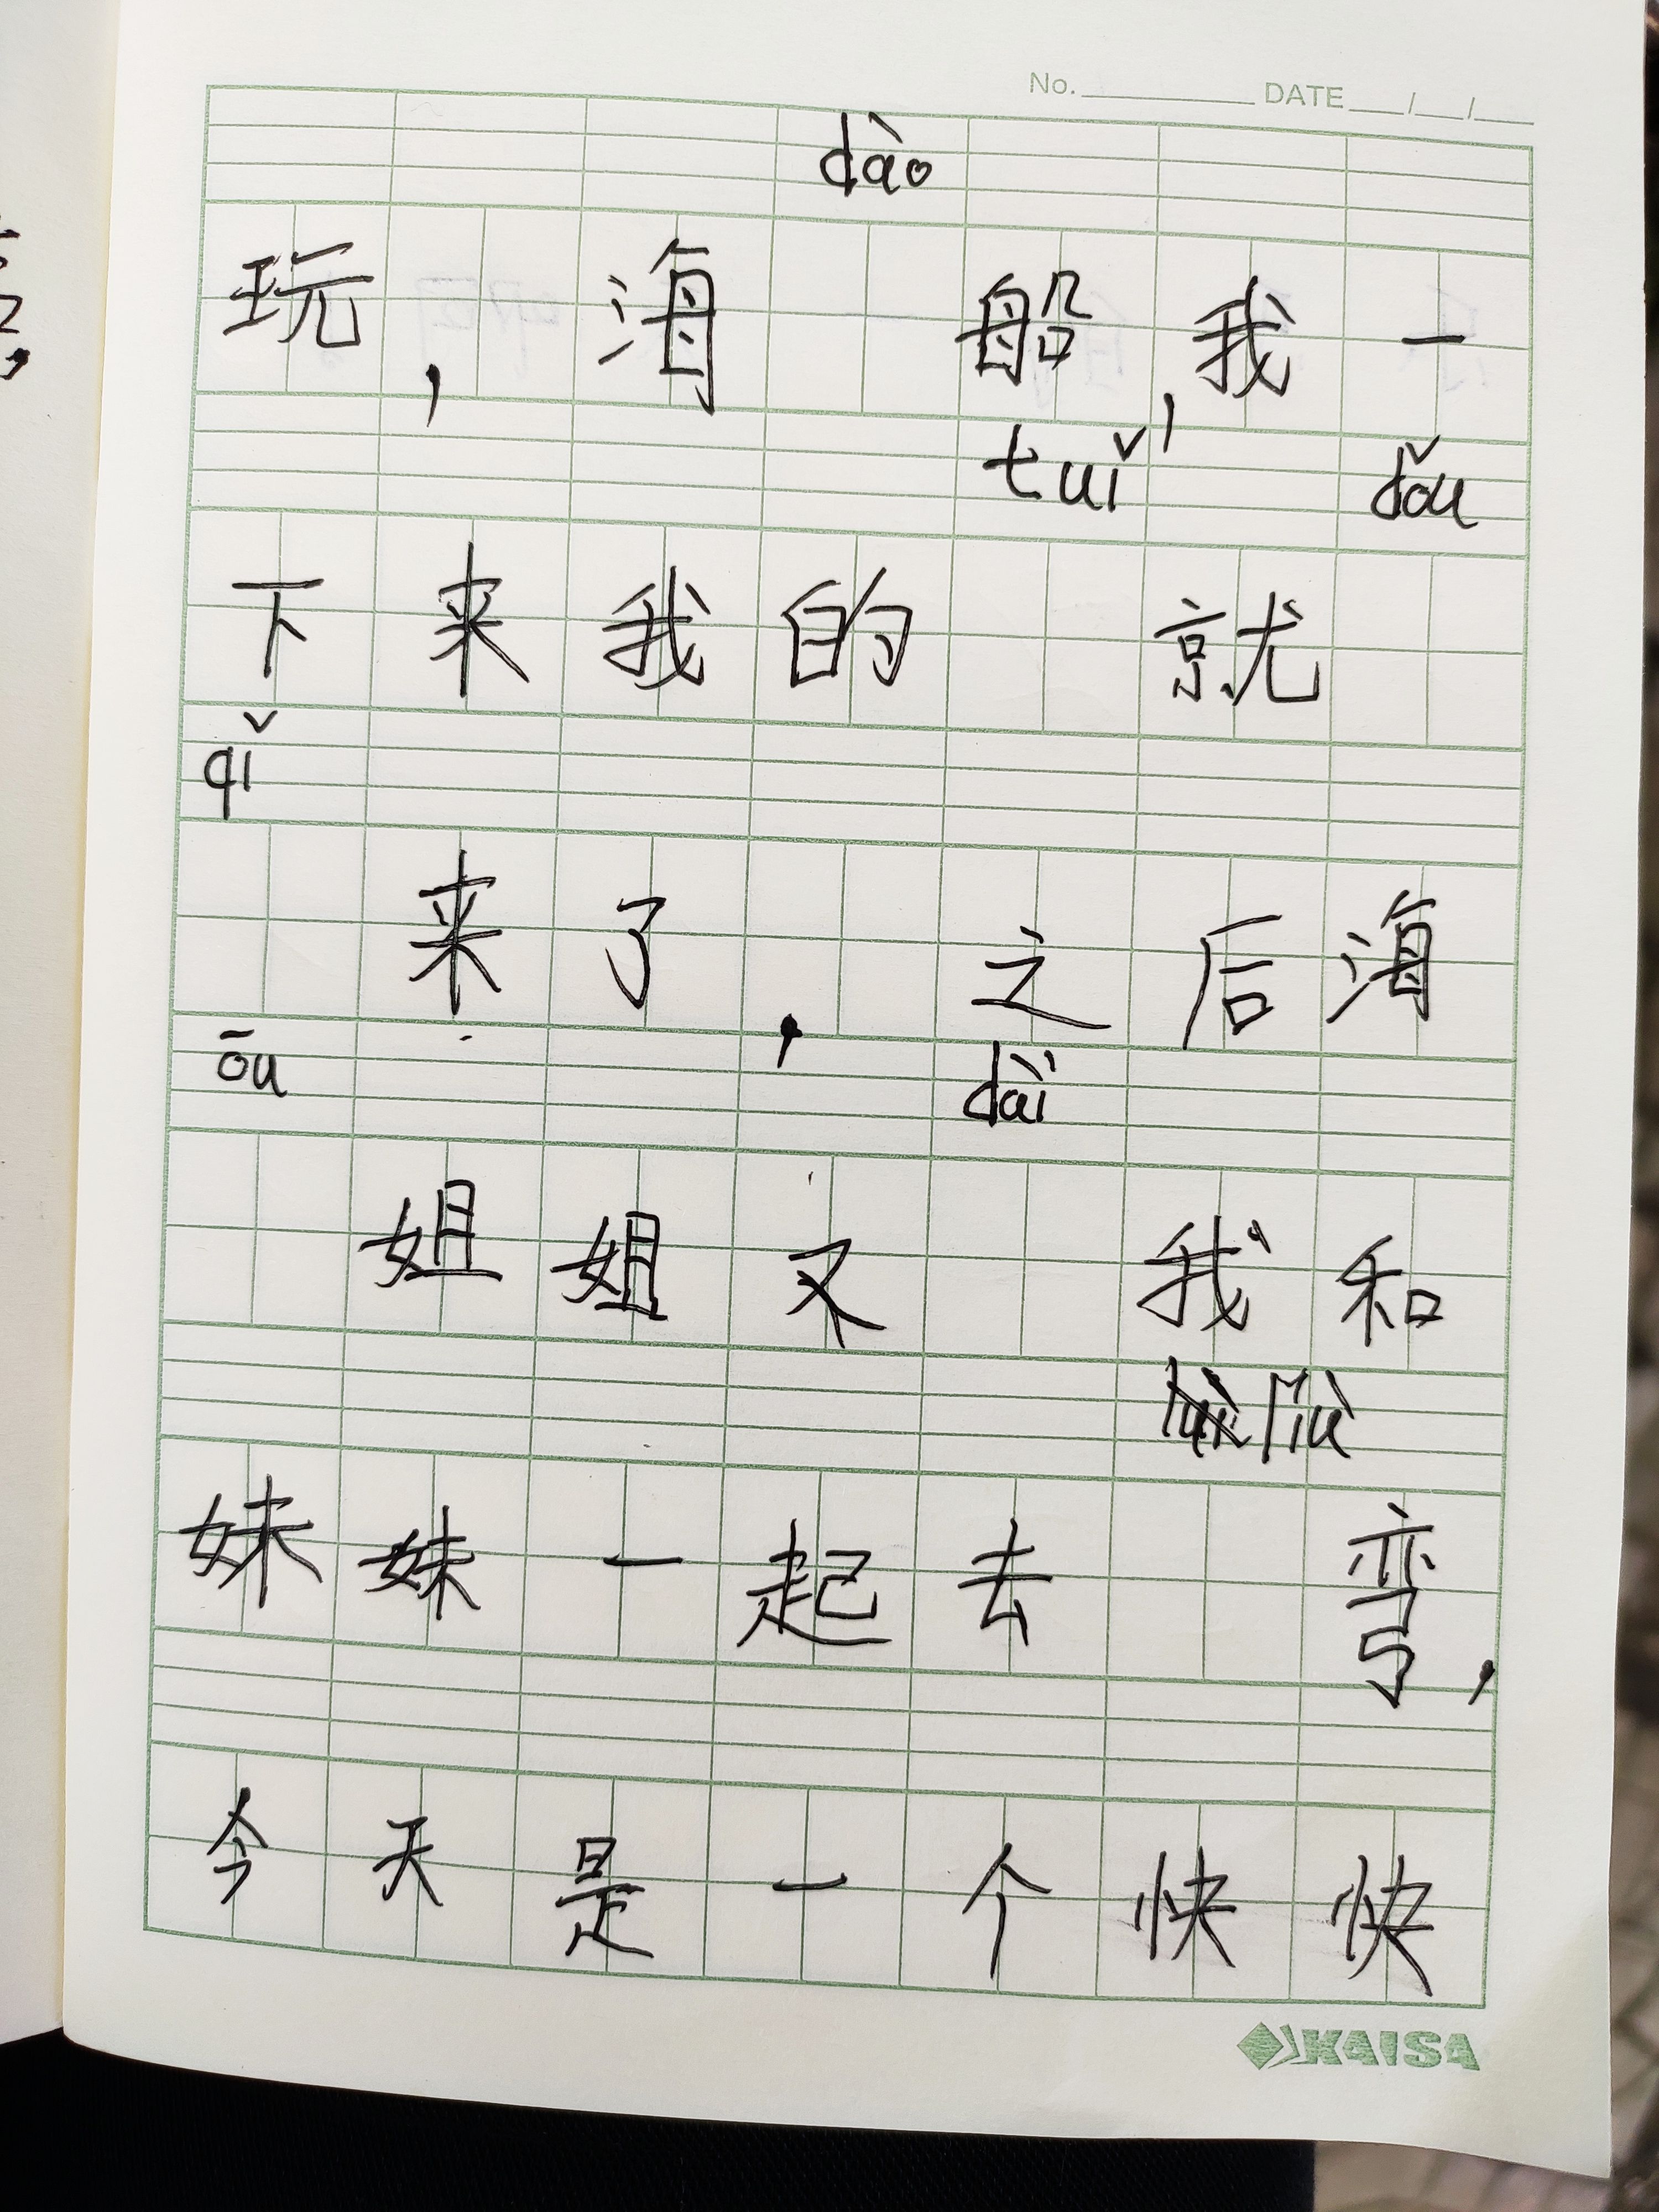 No. DATE / /
dào
玩，海 船，我一
tuǐ dǒu
下来我的 就
qǐ
来了，之后海
ōu dài
姐姐又 我和
liù
妹妹一起去 弯，
今天是一个快快
KAISA